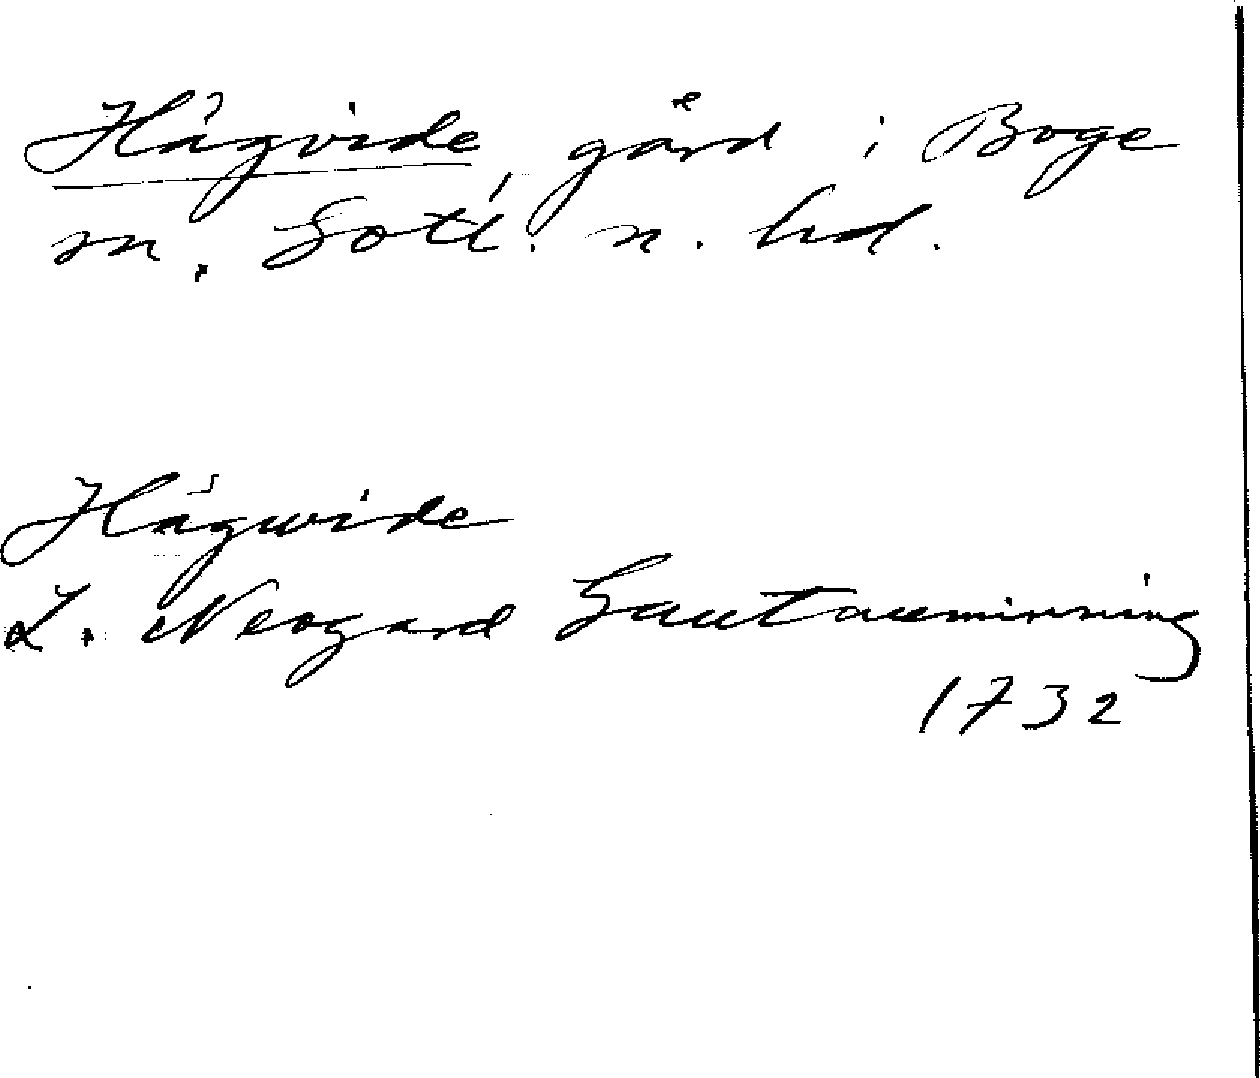 Hågvide gård i Boge
sn. Gotl. n. hd.
Hågwide
L. Neogard Gautauminning
1732